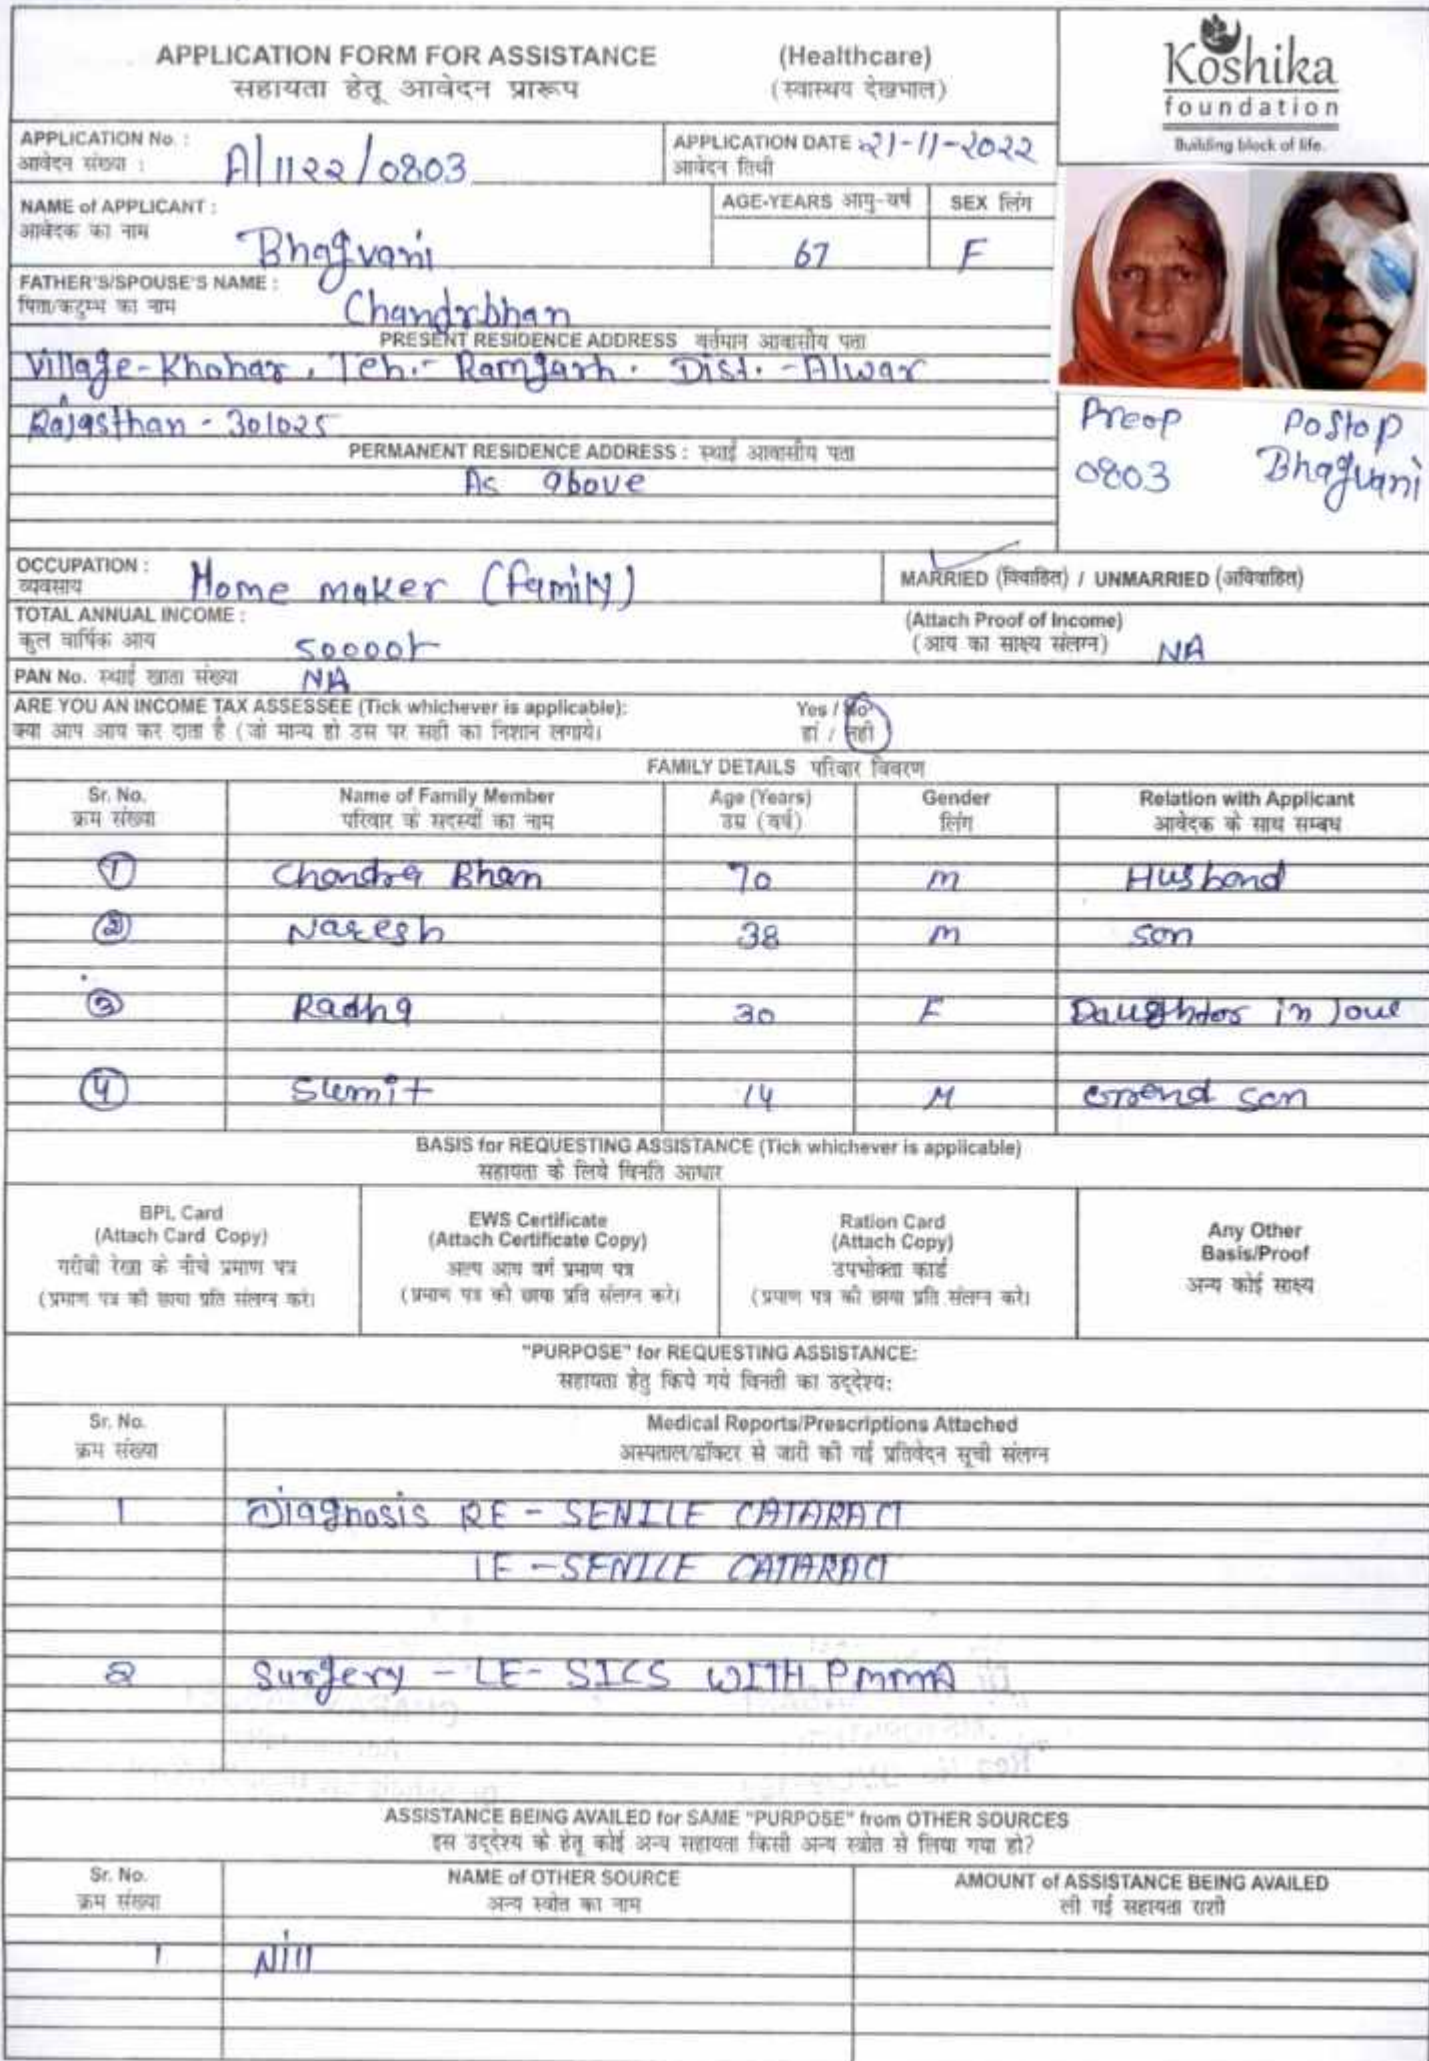 APPLICATION FORM FOR ASSISTANCE (Healthcare)
सहायता हेतू आवेदन प्रारूप (स्वास्थय देखभाल)
Koshika
foundation
Building block of life.
APPLICATION No. : A/1122/0803
आवेदन संख्या :
APPLICATION DATE : 21-11-2022
आवेदन तिथी
NAME of APPLICANT :
आवेदक का नाम Bhagvani
AGE-YEARS आयु-वर्ष 67
SEX लिंग F
FATHER'S/SPOUSE'S NAME :
पिता/कटुम्भ का नाम Chandrbhan
PRESENT RESIDENCE ADDRESS वर्तमान आवासीय पता
Village-Khohar, Teh.- Ramgarh. Dist.-Alwar
Rajasthan - 301025
PERMANENT RESIDENCE ADDRESS : स्थाई आवासीय पता
As above
Preop Postop
0803 Bhagvani
OCCUPATION :
व्यवसाय Home maker (family)
MARRIED (विवाहित) / UNMARRIED (अविवाहित)
TOTAL ANNUAL INCOME :
कुल वार्षिक आय 50000/-
(Attach Proof of Income)
(आय का साक्ष्य संलग्न) NA
PAN No. स्थाई खाता संख्या NA
ARE YOU AN INCOME TAX ASSESSEE (Tick whichever is applicable): Yes / No
क्या आप आय कर दाता है (जो मान्य हो उस पर सही का निशान लगाये। हां / नही
FAMILY DETAILS परिवार विवरण
Sr. No. Name of Family Member Age (Years) Gender Relation with Applicant
क्रम संख्या परिवार के सदस्यों का नाम उम्र (वर्ष) लिंग आवेदक के साथ सम्बध
1 Chandra Bhan 70 M Husband
2 Naresh 38 M son
3 Radha 30 F Daughter in low
4 Sumit 14 M Grand son
BASIS for REQUESTING ASSISTANCE (Tick whichever is applicable)
सहायता के लिये विनति आधार
BPL Card
(Attach Card Copy)
गरीबी रेखा के नीचे प्रमाण पत्र
(प्रमाण पत्र की छाया प्रति संलग्न करे।
EWS Certificate
(Attach Certificate Copy)
अल्प आय वर्ग प्रमाण पत्र
(प्रमाण पत्र की छाया प्रति संलग्न करे।
Ration Card
(Attach Copy)
उपभोक्ता कार्ड
(प्रमाण पत्र की छाया प्रति संलग्न करे।
Any Other
Basis/Proof
अन्य कोई साक्ष्य
"PURPOSE" for REQUESTING ASSISTANCE:
सहायता हेतु किये गये विनती का उद्देश्य:
Sr. No. Medical Reports/Prescriptions Attached
क्रम संख्या अस्पताल/डॉक्टर से जारी की गई प्रतिवेदन सूची संलग्न
1 Diagnosis RE - SENILE CATARACT
LE - SENILE CATARACT
2 Surgery - LE - SICS WITH PMMA
ASSISTANCE BEING AVAILED for SAME "PURPOSE" from OTHER SOURCES
इस उद्देश्य के हेतू कोई अन्य सहायता किसी अन्य स्त्रोत से लिया गया हो?
Sr. No. NAME of OTHER SOURCE AMOUNT of ASSISTANCE BEING AVAILED
क्रम संख्या अन्य स्त्रोत का नाम ली गई सहायता राशी
1 Nill